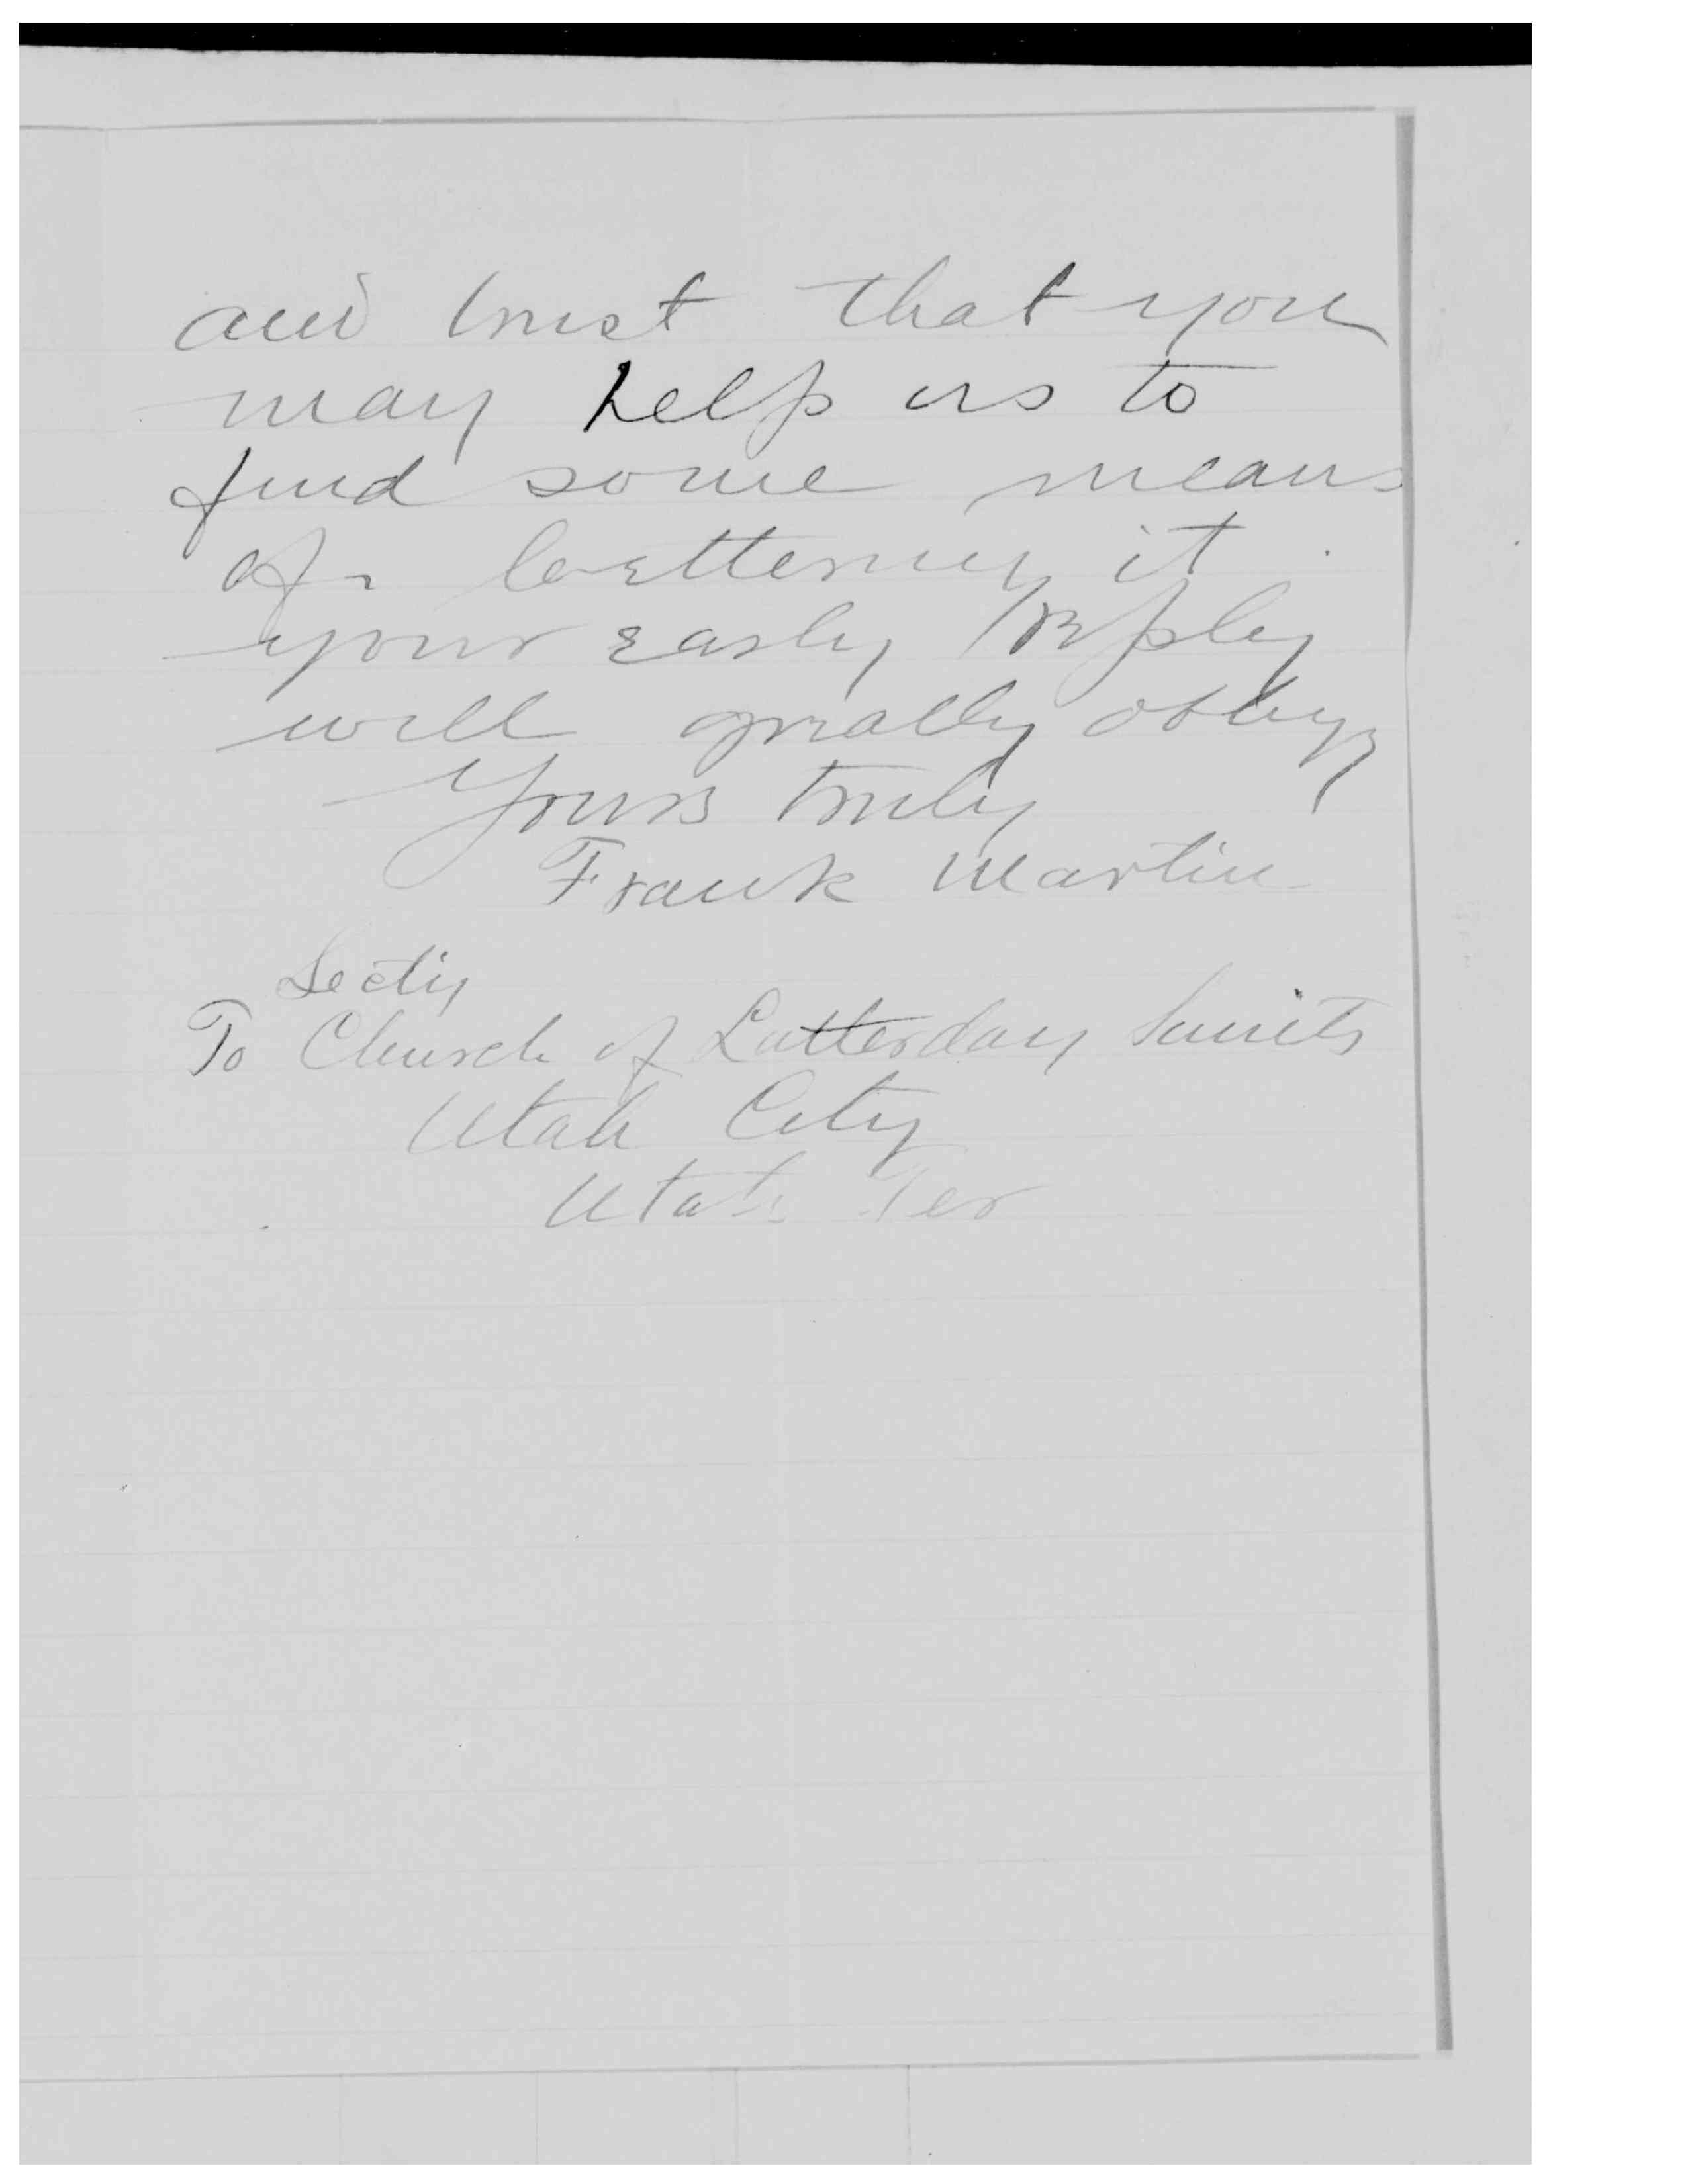 and trust that you
may help us to
find some means
of bettering it
your early reply
will greatly oblige
Yours truly
Frank Martin
Secty
To Church of Latterday Saints
Utah City
Utah Ter